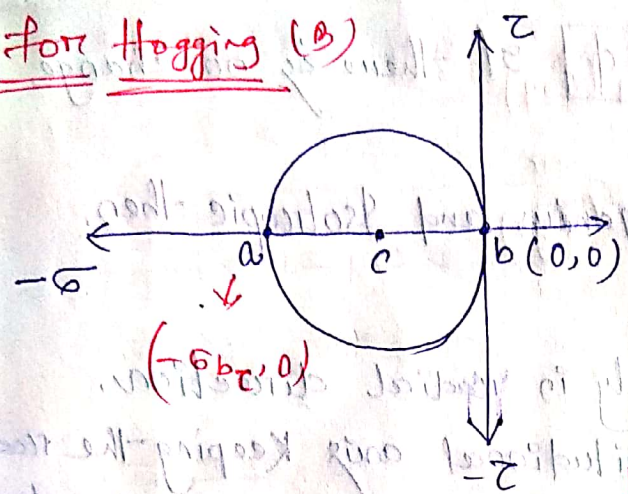 For Hogging (B)
τ
a
c
b (0,0)
-σ
(-σb₂, 0)
-τ